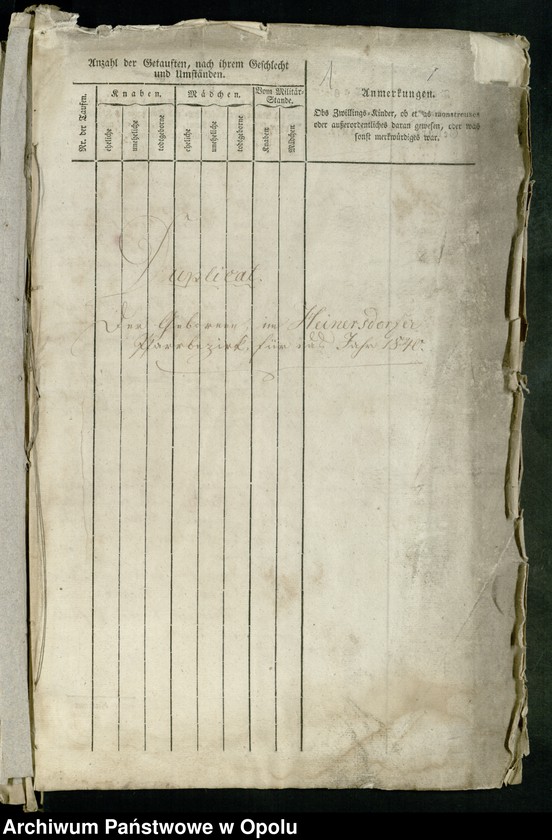 Anzahl der Getauften, nach ihrem Geschlecht
und Umständen.
Nr. der Taufen.
Knaben.
Mädchen.
Vom Militär-
Stande.
eheliche
uneheliche
todtgeborne
eheliche
uneheliche
todtgeborne
Knaben
Mädchen
1
Anmerkungen.
Obs Zwillings-Kinder, ob etwas
oder außerordentliches daran gewesen, oder was
sonst merkwürdiges war.
Duplicat.
Der Geborenen, im Heinersdorfer
Pfarrbezirk, für das Jahr 1840.
Archiwum Państwowe w Opolu